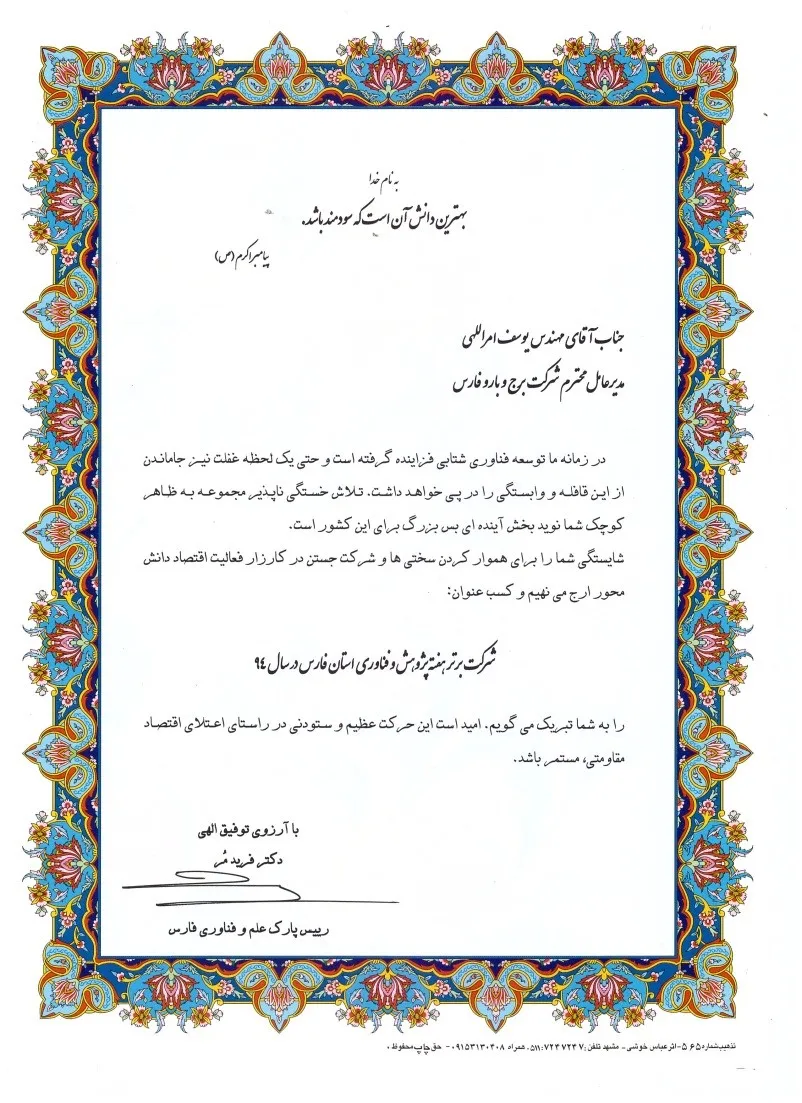 به نام خدا
بهترین دانش آن است که سودمند باشد.
پیامبر اکرم (ص)
جناب آقای مهندس یوسف امراللهی
مدیرعامل محترم شرکت برج و بارو فارس
در زمانه ما توسعه فناوری شتابی فزاینده گرفته است و حتی یک لحظه غفلت نیز جاماندن
از این قافله و وابستگی را در پی خواهد داشت. تلاش خستگی ناپذیر مجموعه به ظاهر
کوچک شما نوید بخش آینده ای بس بزرگ برای این کشور است.
شایستگی شما را برای هموار کردن سختی ها و شرکت جستن در کارزار فعالیت اقتصاد دانش
محور ارج می نهیم و کسب عنوان:
شرکت برتر هفته پژوهش و فناوری استان فارس در سال ۹۴
را به شما تبریک می گویم. امید است این حرکت عظیم و ستودنی در راستای اعتلای اقتصاد
مقاومتی، مستمر باشد.
با آرزوی توفیق الهی
دکتر فرید مُر
رییس پارک علم و فناوری فارس
تذهیب شماره ۵۶۵ - اثر عباس خوشی - مشهد تلفن: ۷۲۴۷۲۴۷ :۵۱۱. همراه ۰۹۱۵۳۱۳۰۴۰۸ - حق چاپ محفوظ .